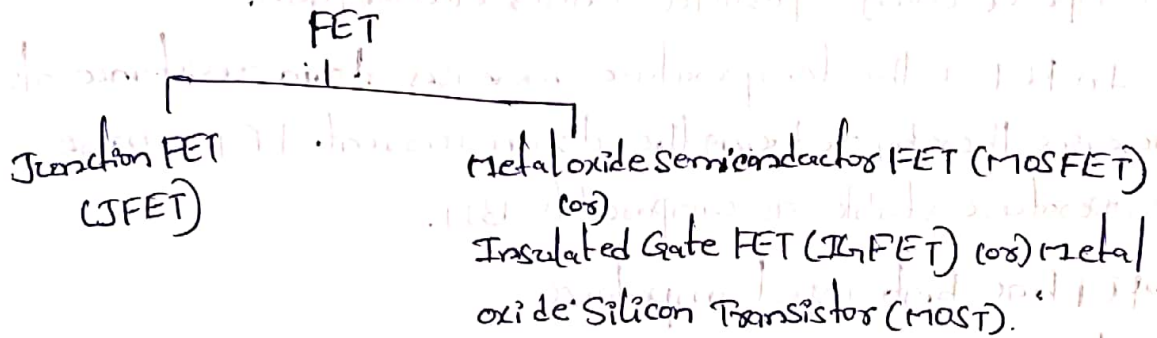 FET
Junction FET
(JFET)
Metal oxide Semiconductor FET (MOSFET)
(or)
Insulated Gate FET (IGFET) (or) Metal
oxide Silicon Transistor (MOST).